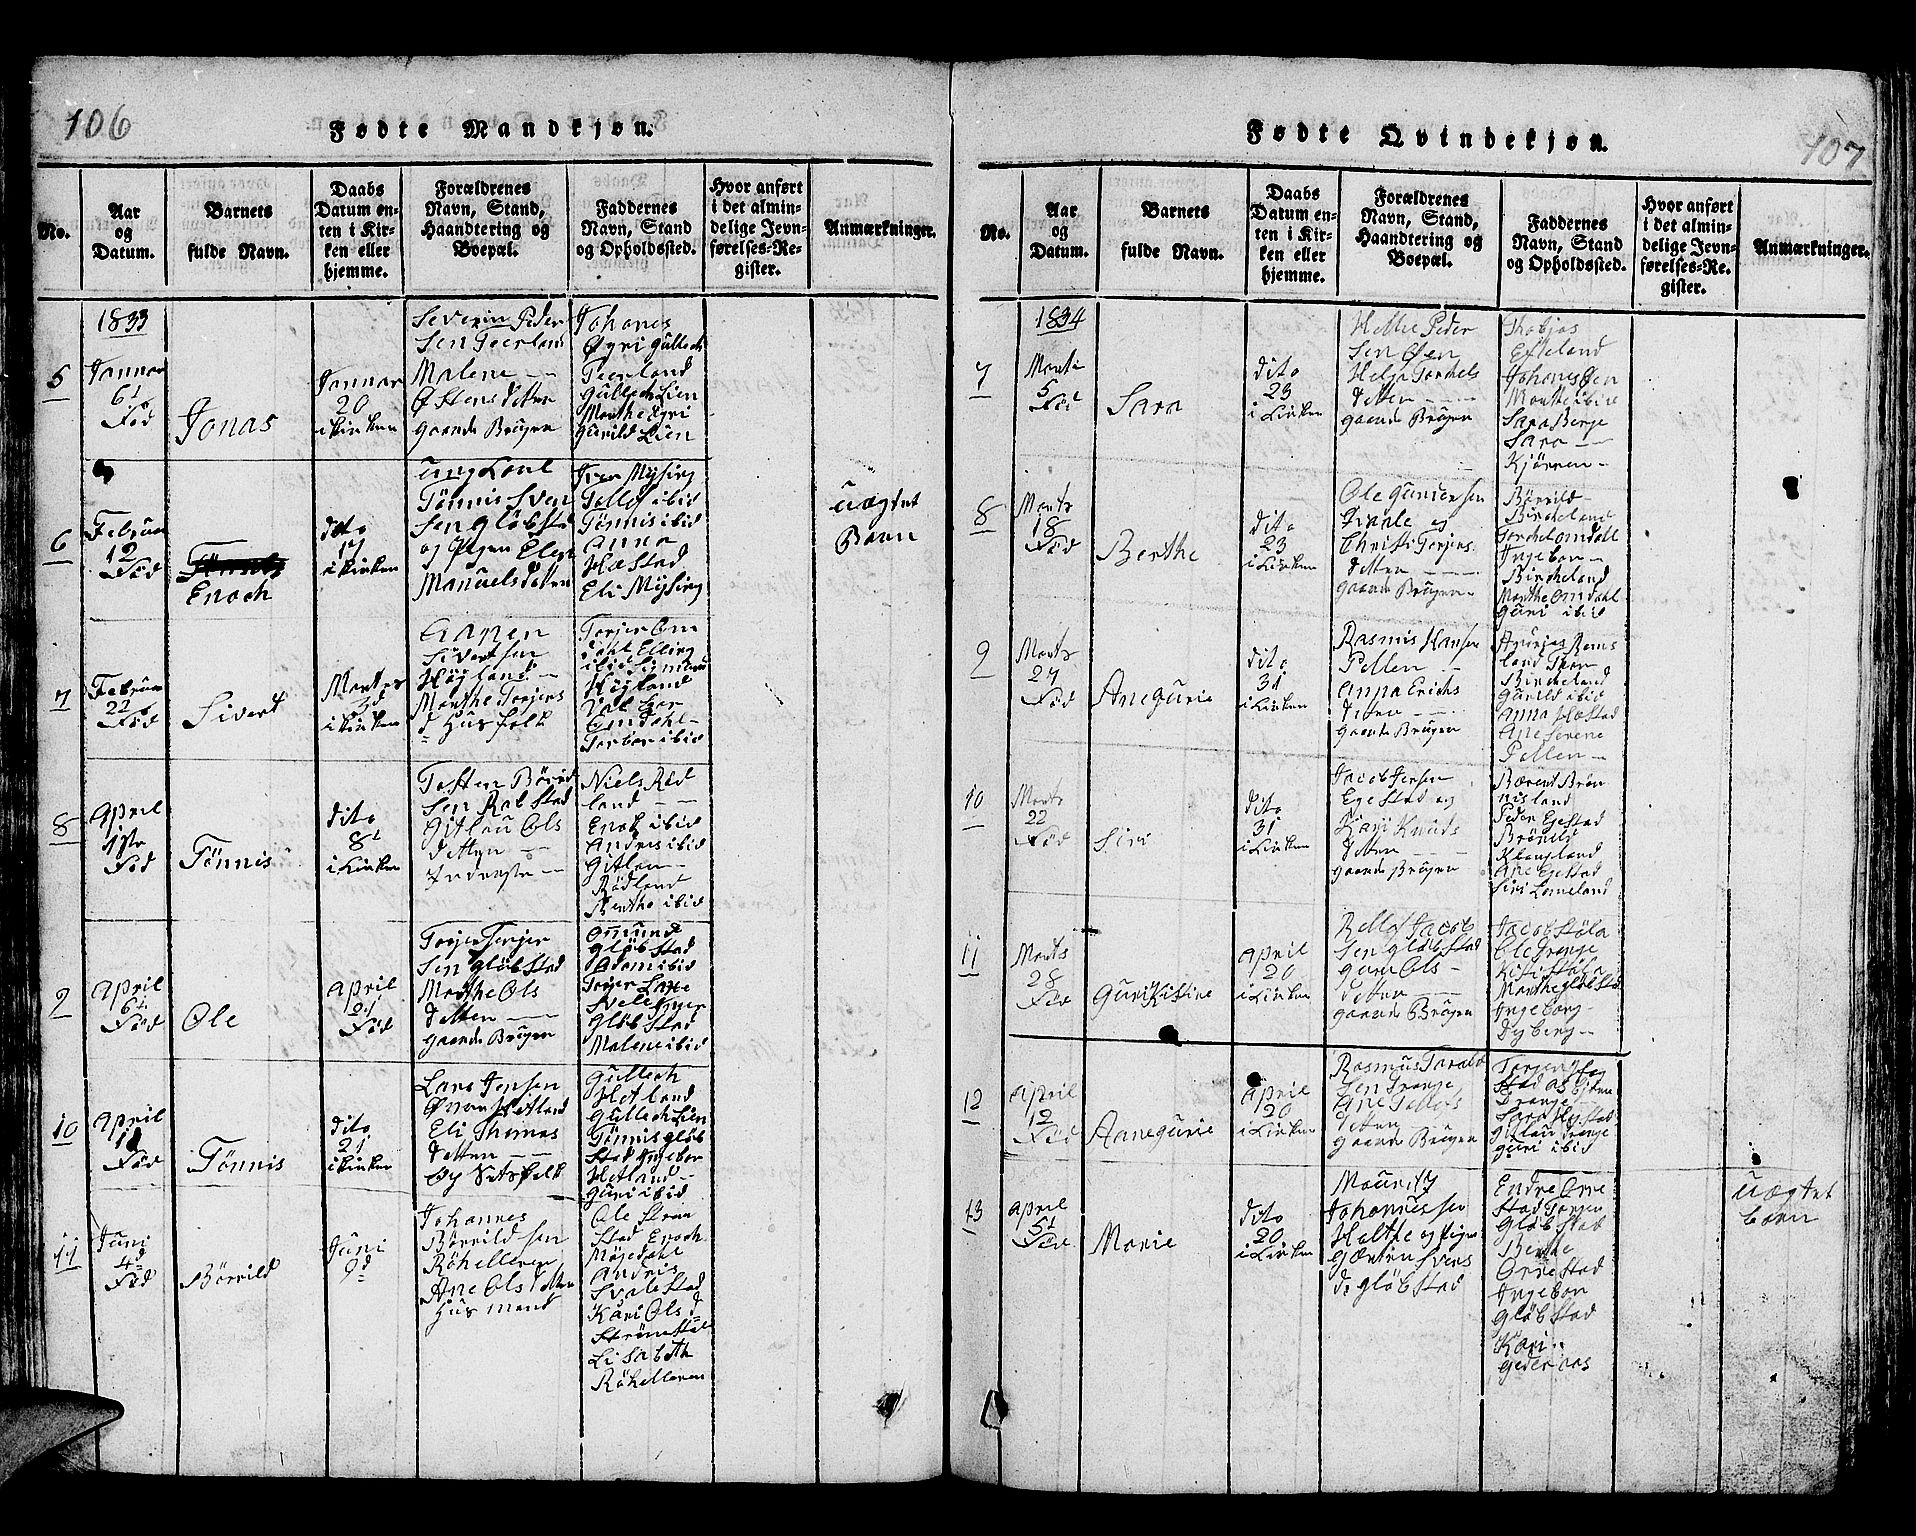 106
Fødte Mandkjøn.
No.
Aar
og
Datum.
Barnets
fulde Navn.
Daabs
Datum en-
ten i Kir-
ken eller
hjemme.
Forældrenes
Navn, Stand,
Haandtering og
Boepæl.
Faddernes
Navn, Stand
og Opholdssted.
Hvor anført
i det almin-
delige Jevn-
førelses-Re-
gister.
Anmærkninger.
1833
5
Jannar
6t
Fød
Jonas
Jannar
20
i kirken
Severin Peder
Sen Teerland
Malene --
Østens dotten
gaande Brügen
Johanes
Øyri Gullech
Teerland
Gullech Lien
Marthe Eyri
Gunild Lien
6
Februar
12
Fød
Enoch
dito
17
i kirken
ung Karl
Tønnis Sven
Sen Gløbstad
og Pigen Elen
Manuels dotten
Iver Mysing
Tollof ibid
Tønnis ibid
Anna
Hæstad
Eli Mysing
uægtet
Barn
7
Februar
22
Fød
Sivert
Marts
3d
i kirken
Aanen
Sivertsen
Høyland --
Marthe Torjers
d Husfolk
Torjer Om
dahl Elling
ibid Simund
Høyland
Valbor
Omdahl-
Torbor ibid
8
April
1ste
Fød
Tønnis
dito
8t
i Kirken
Tosten Børild
Sen Rolstad
Gitlau Ols
dotten --
Inderste --
Niels Rød
land --
Enok ibid
Andris ibid
Gitlou --
Rødland
Berthe ibid
9
April
6t
Fød
Ole
April
21
Fød
Torjer Torjer
Sen Gløbstad
Marthe Ols
dotten ---
gaande Brügen
Omund
Gløbstad
Adam ibid
Gløbstad
Malene ibid
10
April
Fød
Tønnis
dito
21
i kirken
Lars Jensen
Eli Thomas
dotten --
Gullech
Hetland
Gullech Lien
Tønnis Gløb
stad Ingebor
Hetland --
Guri ibid
11
Juni
4d
Fød
Børrild
Juni
9d
Johannes
Børrild Sen
Røkelleren
Ane Ols dotten
Husmand
Ole Strøm
Stad Enoch
Møgedahl
Andris
Svalestad
Kari Ols d
Strømstad
Lisabeth
Røkelleren
Fødte Qvindekjøn.
107
No.
Aar
og
Datum.
Barnets
fulde Navn.
Daabs
Datum en-
ten i Kir-
ken eller
hjemme.
Forældrenes
Navn, Stand,
Haandtering og
Boepæl.
Faddernes
Navn, Stand
og Opholdssted.
Hvor anført
i det almin-
delige Jevn-
førelses-Re-
gister.
Anmærkninger.
1834
7
Marts
5
Fød
Sara
dito
23
i Kirken
Helle Peder
Sen Øen
Helje Torkels
dotten ----
gaande Brügen
Thobjas
Efteland
Johanes Øen
Marthe ibid
Sara Berge
Sara --
Kjørren -
8
Marts
18
Fød
Berthe
dito
23
i Kirken
Ole Gunder Sen
og
Christi Torjers
dotten ----
gaande Brügen -
Børrild -
Bircheland
Torchel Omdall
Ingebor --
Bircheland
Marthe Omdahl
Guri ibid
9
Marts
27
Fød
Ane Gurie
dito
31
i Kirken
Rasmus Hansen
Pollen -
Anna Erichs
dotten --
gaande Brügen
Bircheland
Gunild ibid
Anna Hæstad
Ane Serene
Pollen -
10
Marts
22
Fød
Siri
dito
31
i Kirken
Jacob Jensen
Egestad og
Kari Knuds
dotten ---
gaande Brügen
Bærent Brøn
nisland
Peder Egestad
Brønild
Klungland
Ane Egestad
Siri Lomeland
11
Marts
28
Fød
Guri Kistine
April
20
i Kirken
Rollof Jacob
Sen Gløbstad
Guri Ols -
dotten ---
gaande Brügen
Jacob Støla
Ole Trange
Kisti Støla
Marthe Gløbstad
Ingeborg
Dyberg --
12
April
12
Fød
Aanegurie
April
20
i Kirken
Rasmus Torals
Sen Trange
Ane Tollofs
dotten --
gaande Brügen
Gitlau Trange
Guri ibid
13
April
5t
Fød
Marie
dito
20
i Kirken
Mauritz
Johannes sen
Helthe og Pigen
Gærtru Svens
d. Gløbstad
Endre Orre
stad Torjer
Gløbstad
Berthe
Orrestad
Ingebor
Gløbstad
Kari --
Gederaas
uægtet
barn